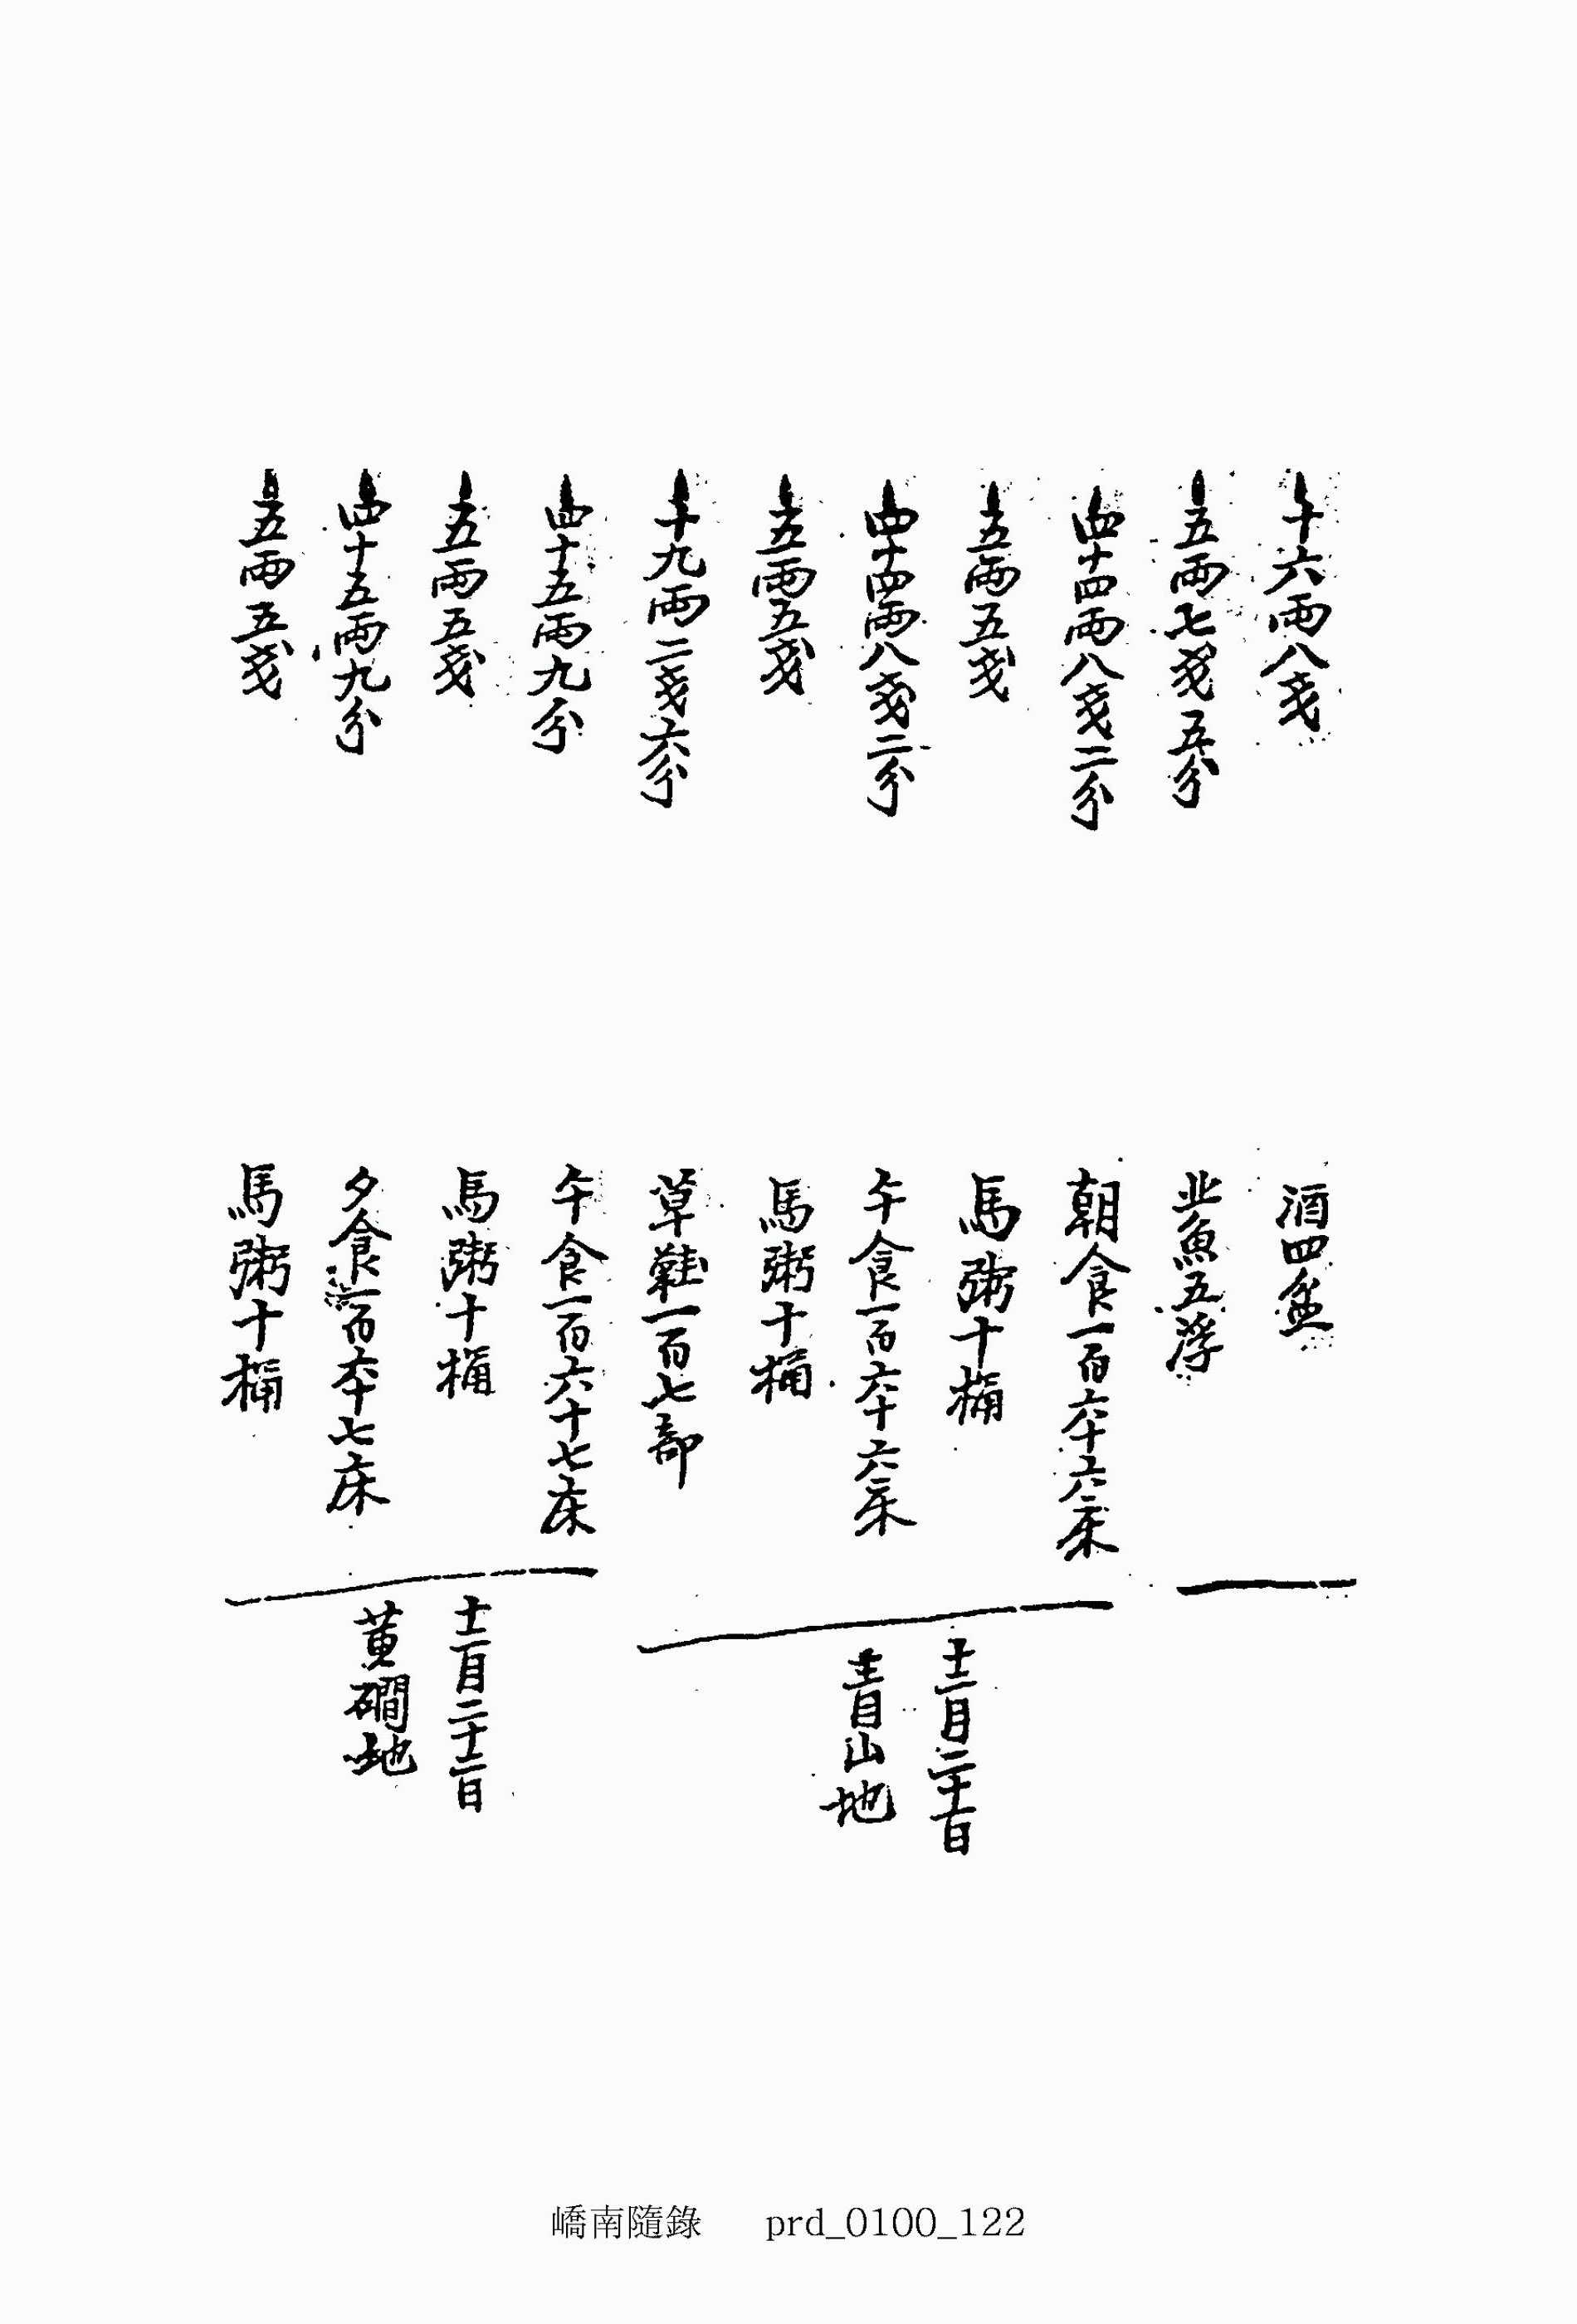 十六兩八戔
酒四盆
五兩七戔五分
北魚五浮
四十四兩八戔二分
朝食一百六十六床
五兩五戔
馬粥十桶
四十四兩八戔二分
午食一百六十六床
五兩五戔
馬粥十桶
十九兩二戔六分
草鞋一百七部
十二月二十一日
靑山地
四十五兩九分
午食一百六十七床
五兩五戔
馬粥十桶
四十五兩九分
夕食一百六十七床
五兩五戔
馬粥十桶
十二月二十二日
黃磵地
嶠南隨錄 prd_0100_122